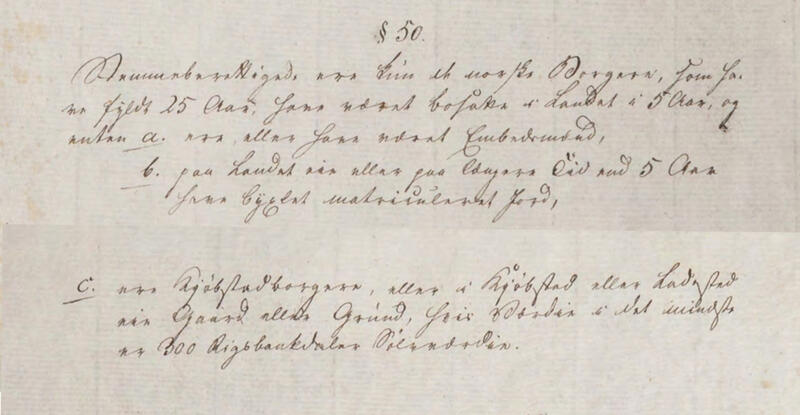 § 50.
Stemmeberettigede ere kun de norske Borgere, som ha-
ve fyldt 25 Aar, have været bosatte i Landet i 5 Aar, og
enten a. ere, eller have været Embedsmænd,
b. paa Landet eie eller paa længere Tid end 5 Aar
have byxlet matriculeret Jord,
c. ere Kjøbstadborgere, eller i Kjøbstad eller Ladested
eie Gaard eller Grund, hvis Værdie i det mindste
er 300 Rigsbankdaler Sølvværdie.